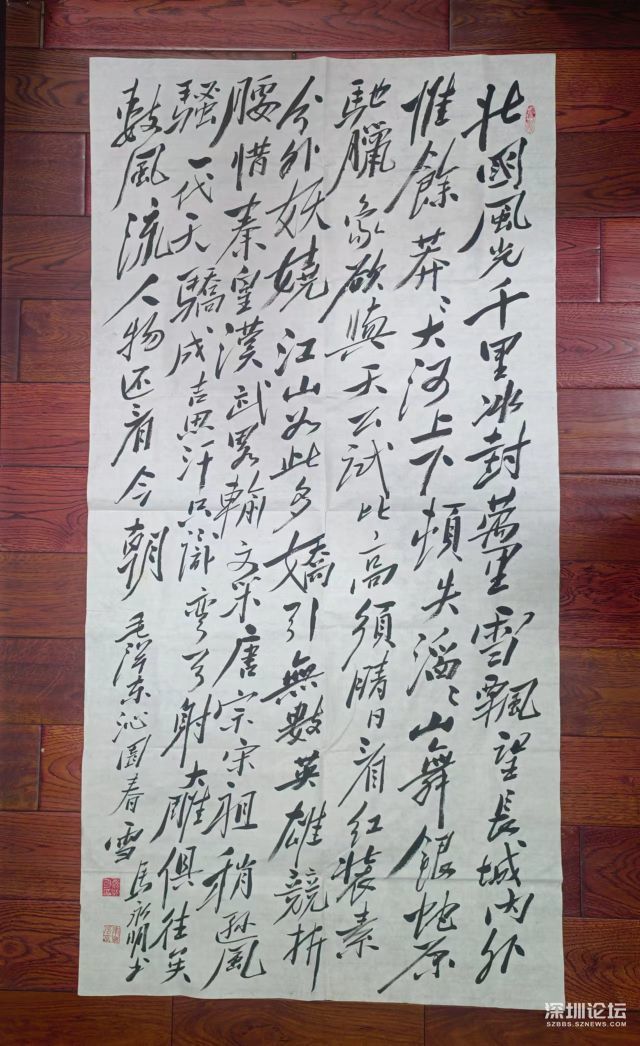 北國風光千里冰封萬里雪飄望長城内外
惟餘莽〻大河上下頓失滔〻山舞銀蛇原
馳臘象欲與天公試比高須晴日看红装素
分外妖嬈江山如此多嬌引無數英雄競折
腰惜秦皇漢武畧輸文采唐宗宋祖稍逊風
騷一代天驕成吉思汗只識彎弓射大雕俱往矣
數風流人物还看今朝
毛澤东沁園春雪
馬永明书
深圳论坛
SZBBS.SZNEWS.COM